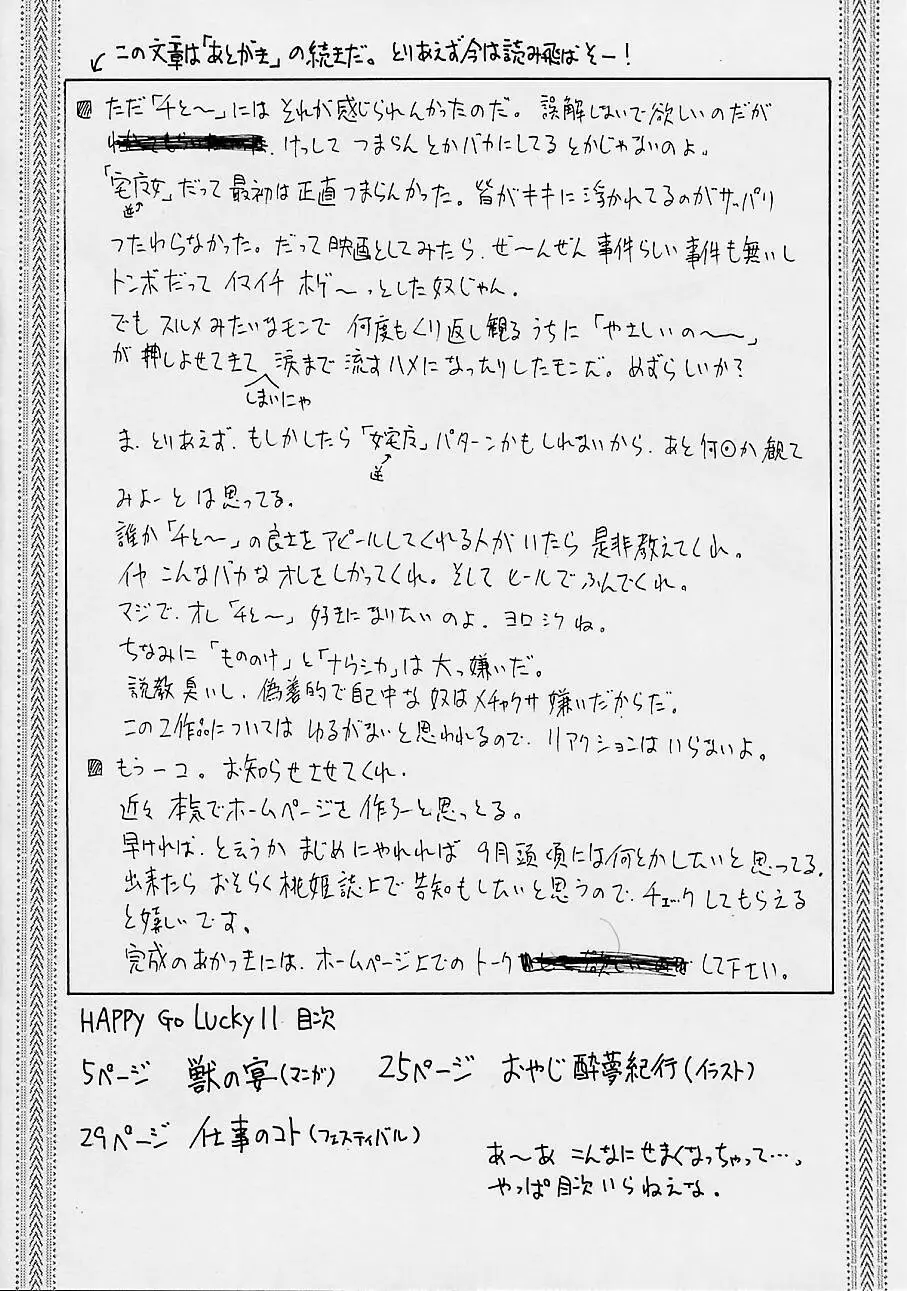 この文章は「あとがき」の続きだ。とりあえず今は読み飛ばそー!
ただ「千と〜」にはそれが感じられんかったのだ。誤解しないで欲しいのだが
、けっしてつまらんとかバカにしてるとかじゃないのよ。
「宅魔女」だって最初は正直つまらんかった。皆がキキに浮かれてるのがサッパリ
逆
つたわらなかった。だって映画としてみたら、ぜ〜んぜん事件らしい事件も無いし
トンボだってイマイチホゲ〜っとした奴じゃん。
でもスルメみたいなモンで何度もくり返し観るうちに「やさしいの〜〜」
が押しよせてきて涙まで流すハメになったりしたモンだ。めずらしいか?
しまいにゃ
ま、とりあえず、もしかしたら「女宅」パターンかもしれないから、あと何回か観て
逆
みよーとは思ってる。
誰か「千と〜」の良さをアピールしてくれる人がいたら是非教えてくれ。
イヤこんなバカなオレをしかってくれ。そしてヒールでふんでくれ。
マジで、オレ「千と〜」好きになりたいのよ。ヨロシクね。
ちなみに「もののけ」と「ナウシカ」は大っ嫌いだ。
説教臭いし、偽善的で自己中な奴はメチャクサ嫌いだからだ。
この2作品についてはゆるがないと思われるので、リアクションはいらないよ。
もう一コ。お知らせさせてくれ。
近々本気でホームページを作ろーと思っとる。
早ければ、と云うかまじめにやれれば9月頭頃には何とかしたいと思ってる。
出来たらおそらく桃姫誌上で告知もしたいと思うので、チェックしてもらえる
と嬉しいです。
完成のあかつきには、ホームページ上でのトーク して下さい。
HAPPY Go Lucky 11 目次
5ページ 獣の宴(マンガ) 25ページ おやじ酔夢紀行(イラスト)
29ページ 仕事のコト(フェスティバル)
あ〜あ こんなにせまくなっちゃって…。
やっぱ目次いらねえな。